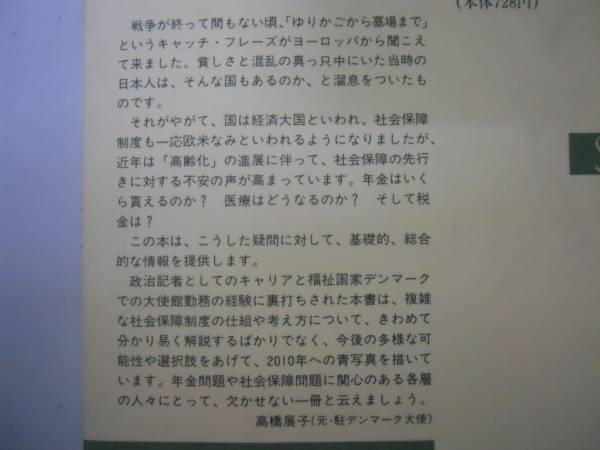 (本体728円)
戦争が終って間もない頃、「ゆりかごから墓場まで」
というキャッチ・フレーズがヨーロッパから聞こえ
て来ました。貧しさと混乱の真っ只中にいた当時の
日本人は、そんな国もあるのか、と溜息をついたも
のです。
それがやがて、国は経済大国といわれ、社会保障
制度も一応欧米なみといわれるようになりましたが、
近年は「高齢化」の進展に伴って、社会保障の先行
きに対する不安の声が高まっています。年金はいく
ら貰えるのか？　医療はどうなるのか？　そして税
金は？
この本は、こうした疑問に対して、基礎的、総合
的な情報を提供します。
政治記者としてのキャリアと福祉国家デンマーク
での大使館勤務の経験に裏打ちされた本書は、複雑
な社会保障制度の仕組や考え方について、きわめて
分かり易く解説するばかりでなく、今後の多様な可
能性や選択肢をあげて、2010年への青写真を描いて
います。年金問題や社会保障問題に関心のある各層
の人々にとって、欠かせない一冊と云えましょう。
高橋展子(元・駐デンマーク大使)